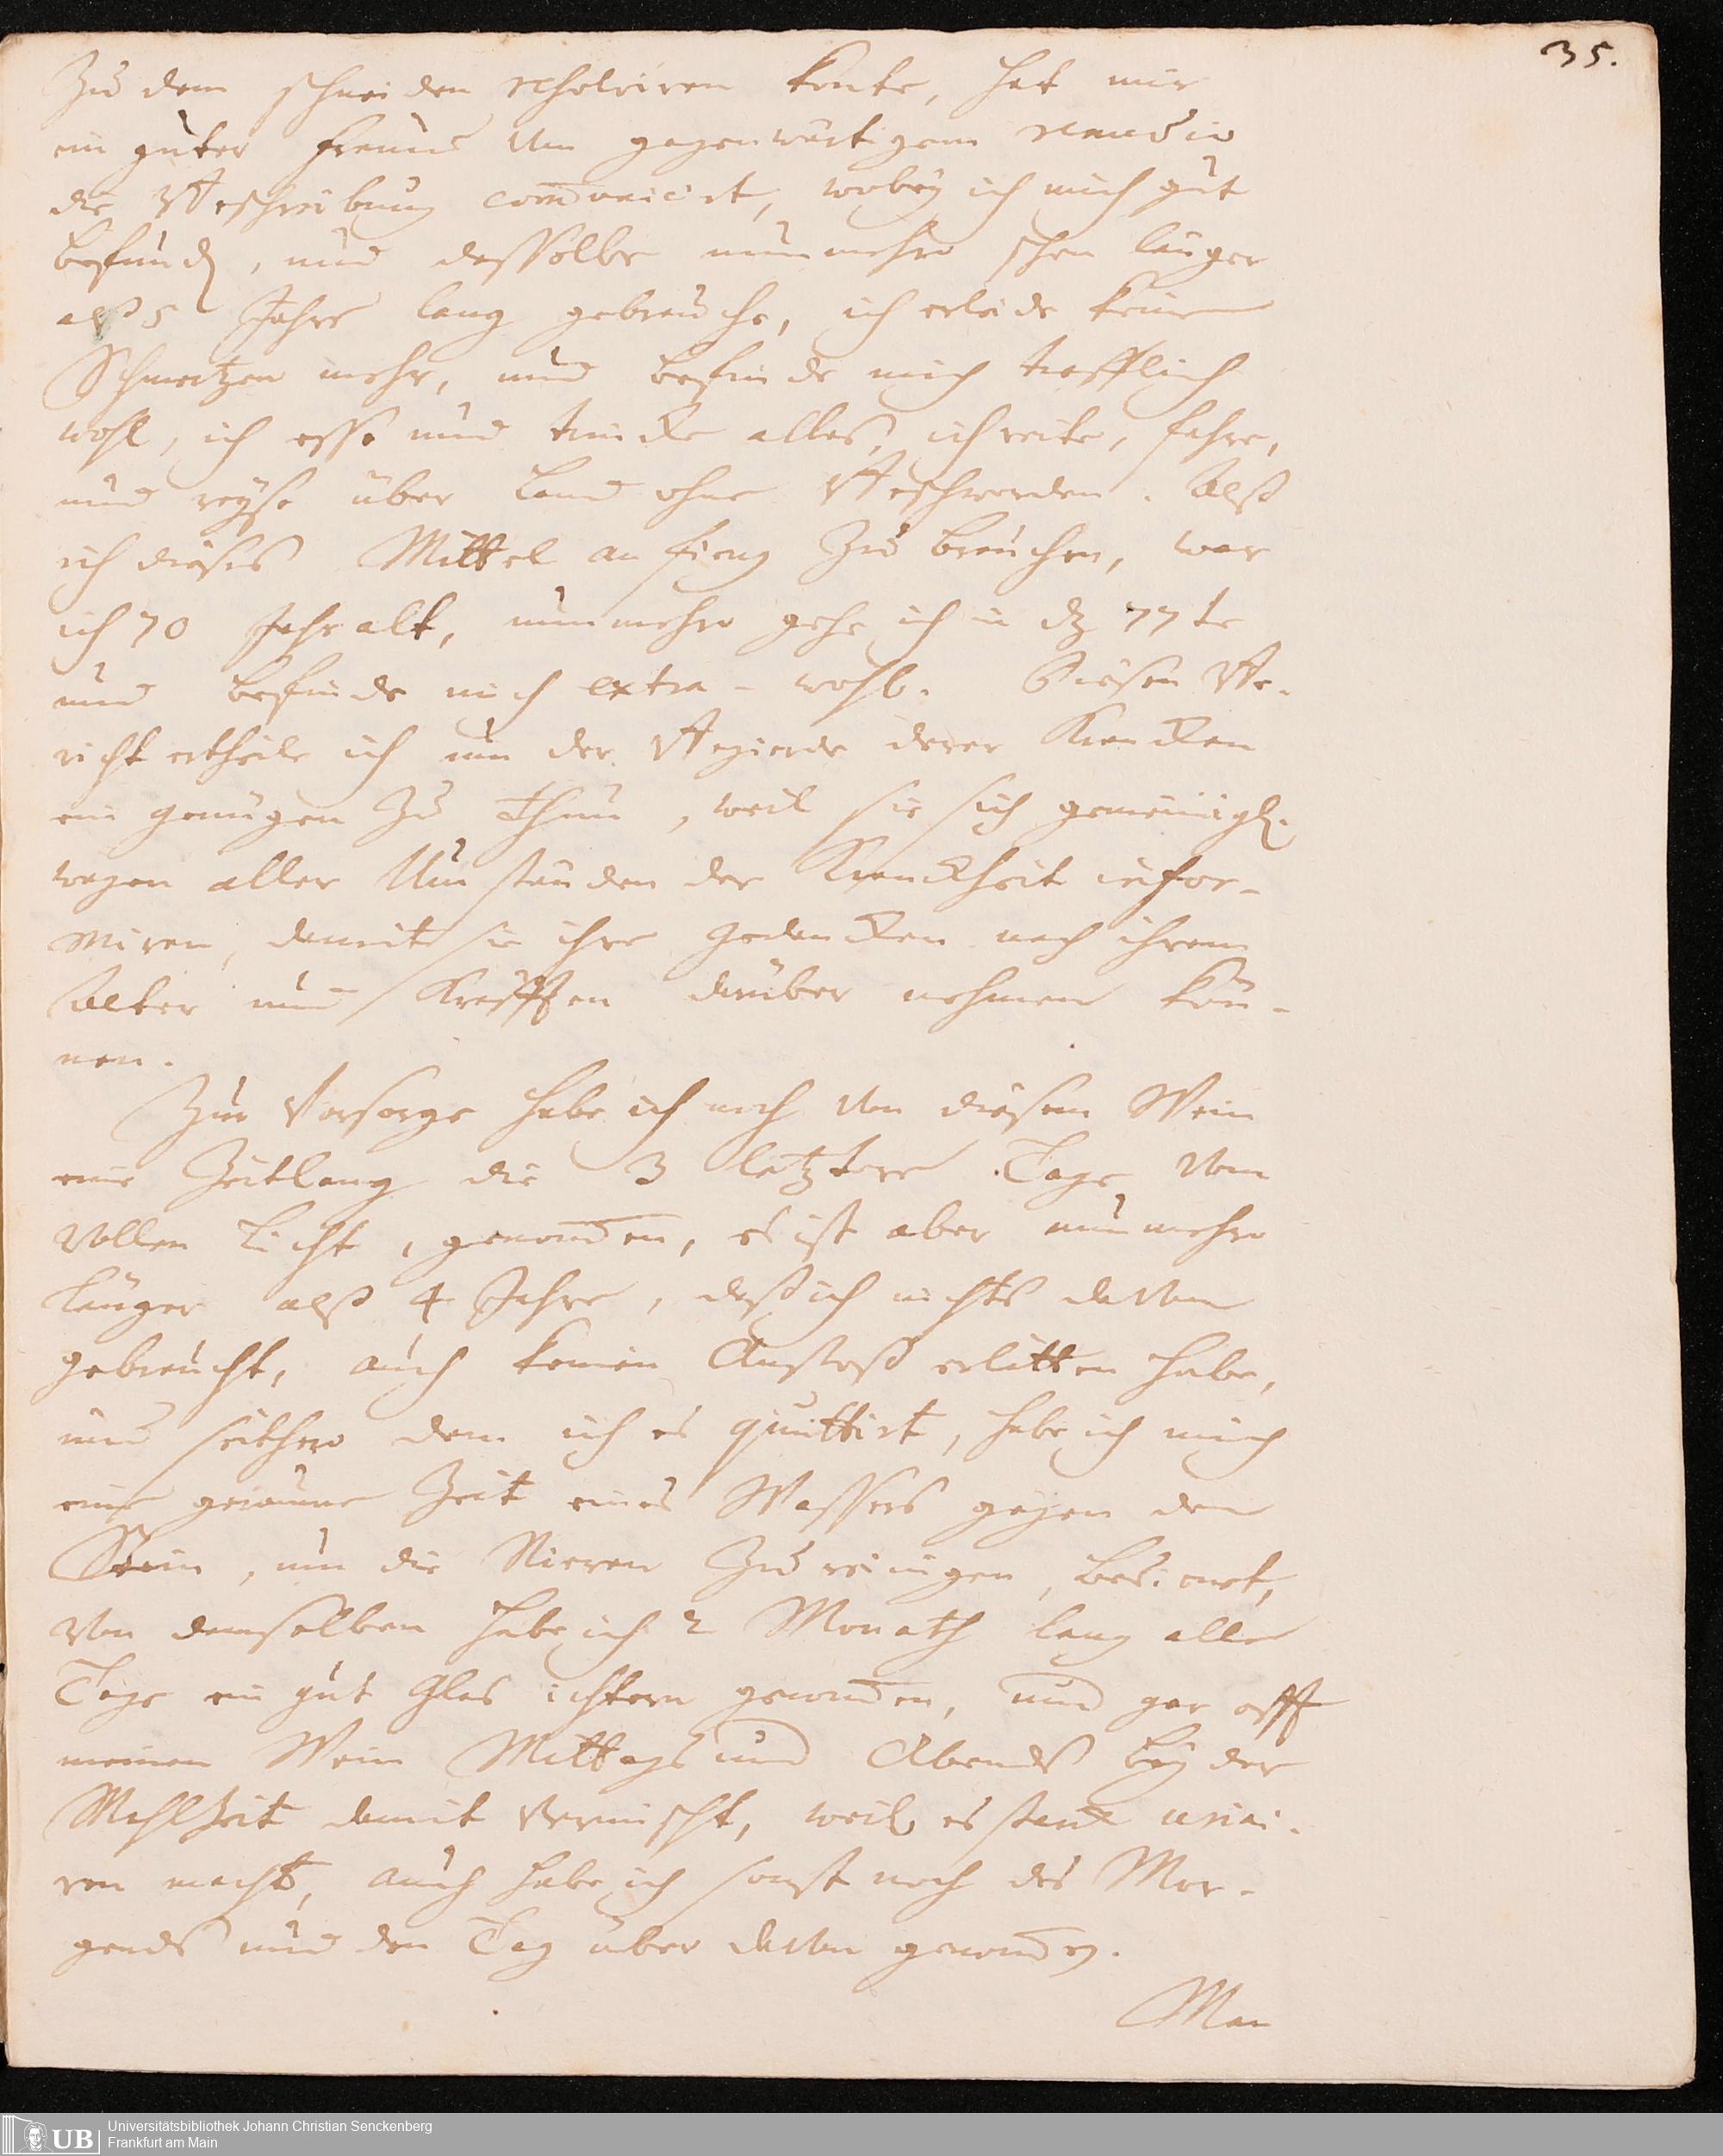 35.
Zu dem schneiden resolviren konte, hat mir
ein guter freund von gegenwärtigem remedio
die Beschreibung com̅unicirt, wobey ich mich gut
befund, und desselbe nunmehro schon länger
alß 5 Jahre lang gebrauche, ich erleide keinen
Schmertzen mehr, und befinde mich trefflich
wohl, ich esse und trincke alles, ich reite, fahre,
und reyse über Land ohne Beschwerden. Alß
ich dieses Mittel anfieng Zu brauchen, war
ich 70 Jahr alt, nunmehro gehe ich in dz 77te
und befinde mich extra-wohl. Diesen Be-
richt ertheile ich um der Begierde derer Krancken
ein genügen Zu thun, weil sie sich gemeinigl.
wegen aller Umständen der Kranckheit infor-
miren, damit sie ihre gedancken nach ihrem
Alter und Kräfften darüber nehmen kön-
nen.
Zur Vorsorge habe ich noch von diesem Wein
eine Zeitlang die 3 letztere Tage vom
vollen Licht, genom̅en, es ist aber nunmehro
länger alß 4 Jahre, daß ich nichts davon
gebraucht, auch keinen Anstoß erlitten habe,
und seithero dem ich es quittirt, habe ich mich
eine geraume Zeit eines Wassers gegen den
Stein, um die Nieren Zu reinigen, bedient,
von demselben habe ich 2 Monath lang alle
Tage ein gut Glas nüchtern genom̅en, und gar offt
meinen Wein Mittags und Abends bey der
Mahlzeit damit vermischt, weil es starck urini-
ren macht, auch habe ich sonst noch des Mor-
gends und den Tag über davon genom̅en.
Man
UB
Universitätsbibliothek Johann Christian Senckenberg
Frankfurt am Main